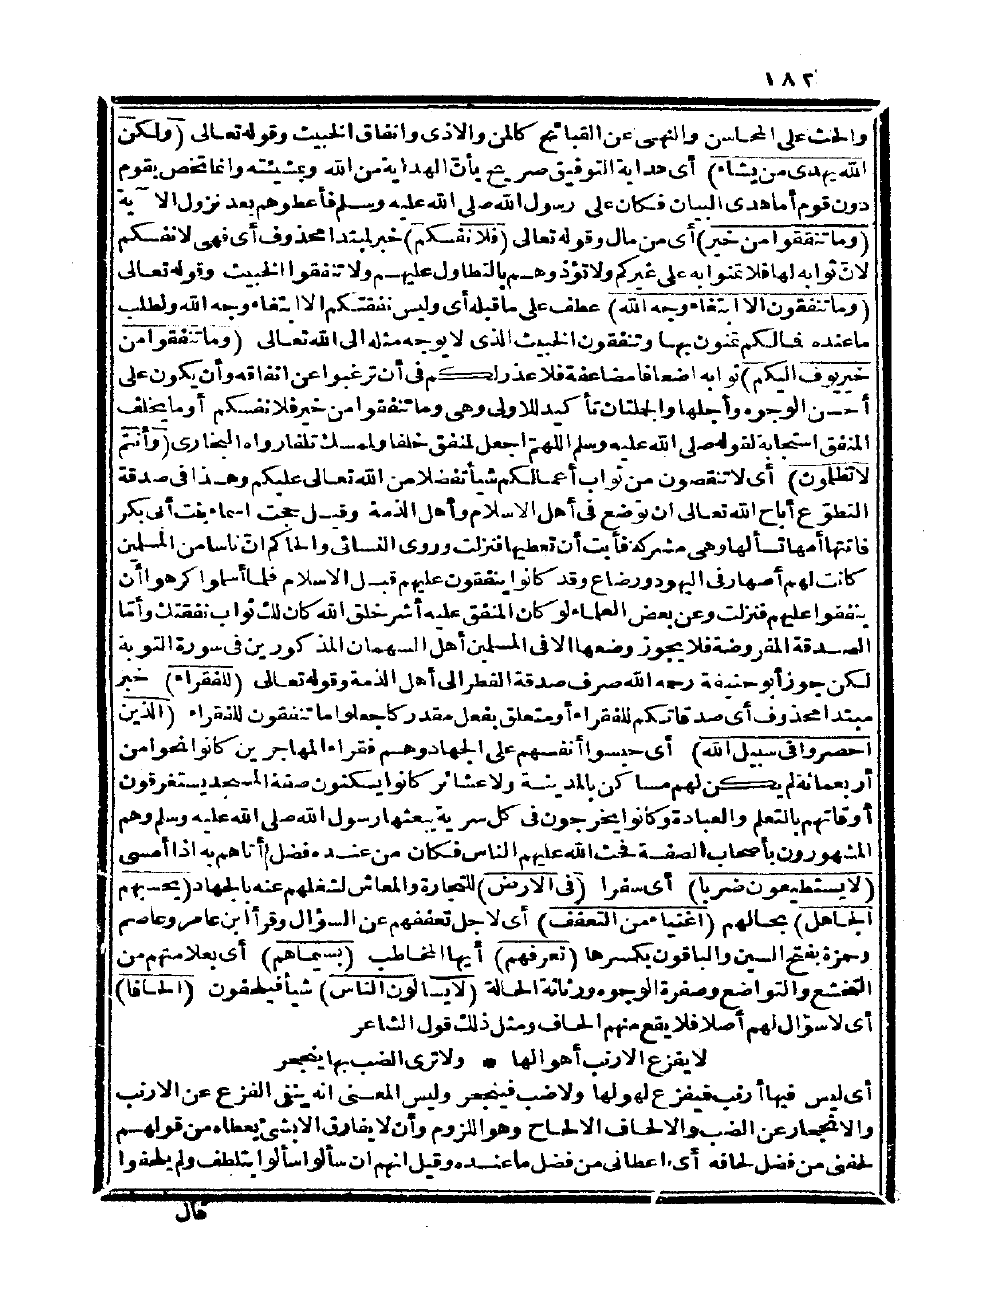 ١٨٢
والحث على المحاسن والنهى عن القبائح كالمن والاذى وانفاق الخبيث وقوله تعالى (ولكن
الله يهدى من يشاء) أى هداية التوفيق صريح بأنّ الهداية من الله وبمشيئته وانما تخص بقوم
دون قوم أما هدى البيان فكان على رسول الله صلى الله عليه وسلم فأعطوهم بعد نزول الآية
(وما تنفقوا من خير) أى من مال وقوله تعالى (فلا نفسكم) خبر لمبتدا محذوف أى فهى لانفسكم
لانّ ثوابه لها فلا تمنوا به على غيركم ولا تؤذوهم بالتطاول عليهم ولا تنفقوا الخبيث وقوله تعالى
(وما تنفقون الا ابتغاء وجه الله) عطف على ما قبله أى وليس نفقتكم الا ابتغاء وجه الله ولطلب
ما عنده فمالكم تمنون بها وتنفقون الخبيث الذى لا يوجه مثله الى الله تعالى (وما تنفقوا من
خير يوف اليكم) ثوابه اضعافا مضاعفة فلا عذر لكم فى أن ترغبوا عن انفاقه وأن يكون على
أحسن الوجوه وأجلها والجملتان تأكيد للاولى وهى وما تنفقوا من خير فلا نفسكم أو ما يخلف
المنفق استجابة لقوله صلى الله عليه وسلم اللهم اجعل لمنفق خلفا ولممسك تلفا رواه البخارى (وأنتم
لا تظلمون) أى لا تنقصون من ثواب أعمالكم شيأ تفضلا من الله تعالى عليكم وهذا فى صدقة
التطوّع أباح الله تعالى ان توضع فى أهل الاسلام وأهل الذمة وقيل حجت اسماء بنت أبى بكر
فاتتها أمها تسألها وهى مشركة فأبت أن تعطيها فنزلت وروى النسائى والحاكم انّ ناسا من المسلمين
كانت لهم أصهار فى اليهود ورضاع وقد كانوا ينفقون عليهم قبل الاسلام فلما أسلموا كرهوا أن
ينفقوا عليهم فنزلت وعن بعض العلماء لو كان المنفق عليه أشر خلق الله كان لك ثواب نفقتك وأمّا
الصدقة المفروضة فلا يجوز وضعها الا فى المسلمين أهل السهمان المذكورين فى سورة التوبة
لكن جوز أبو حنيفة رحمه الله صرف صدقة الفطر الى أهل الذمة وقوله تعالى (للفقراء) خبر
مبتدا محذوف أى صدقاتكم للفقراء أو متعلق بفعل مقدر كاجعلوا ما تنفقون للفقراء (الذين
احصروا فى سبيل الله) أى حبسوا أنفسهم على الجهاد وهم فقراء المهاجرين كانوا نحوا من
أربعمائة لم يكن لهم مساكن بالمدينة ولا عشائر كانوا يسكنون صفة المسجد يستغرقون
أوقاتهم بالتعلم والعبادة وكانوا يخرجون فى كل سرية يبعثها رسول الله صلى الله عليه وسلم وهم
المشهورون بأصحاب الصفة فحث الله عليهم الناس فكان من عنده فضل أتاهم به اذا أمسى
(لا يستطيعون ضربا) أى سفرا (فى الارض) للتجارة والمعاش لشغلهم عنه بالجهاد (يحسبهم
الجاهل) بحالهم (اغنياء من التعفف) أى لاجل تعففهم عن السؤال وقرأ ابن عامر وعاصم
وحمزة بفتح السين والباقون بكسرها (تعرفهم) أيها المخاطب (بسيماهم) أى بعلامتهم من
التخشع والتواضع وصفرة الوجوه ورثاثة الحالة (لا يسألون الناس) شيأ فيلحفون (الحافا)
أى لا سؤال لهم أصلا فلا يقع منهم الحاف ومثل ذلك قول الشاعر
لا يفزع الارنب أهوالها * ولا ترى الضب بها ينجحر
أى ليس فيها أرنب فيفزع لهولها ولا ضب فينجحر وليس المعنى انه ينفى الفزع عن الارنب
والانجحار عن الضب والالحاف الالحاح وهو اللزوم وأن لا يفارق الا بشئ يعطاه من قولهم
لحفنى من فضل لحافه أى اعطانى من فضل ما عنده وقيل انهم ان سألوا سألوا بتلطف ولم يلحفوا
قال